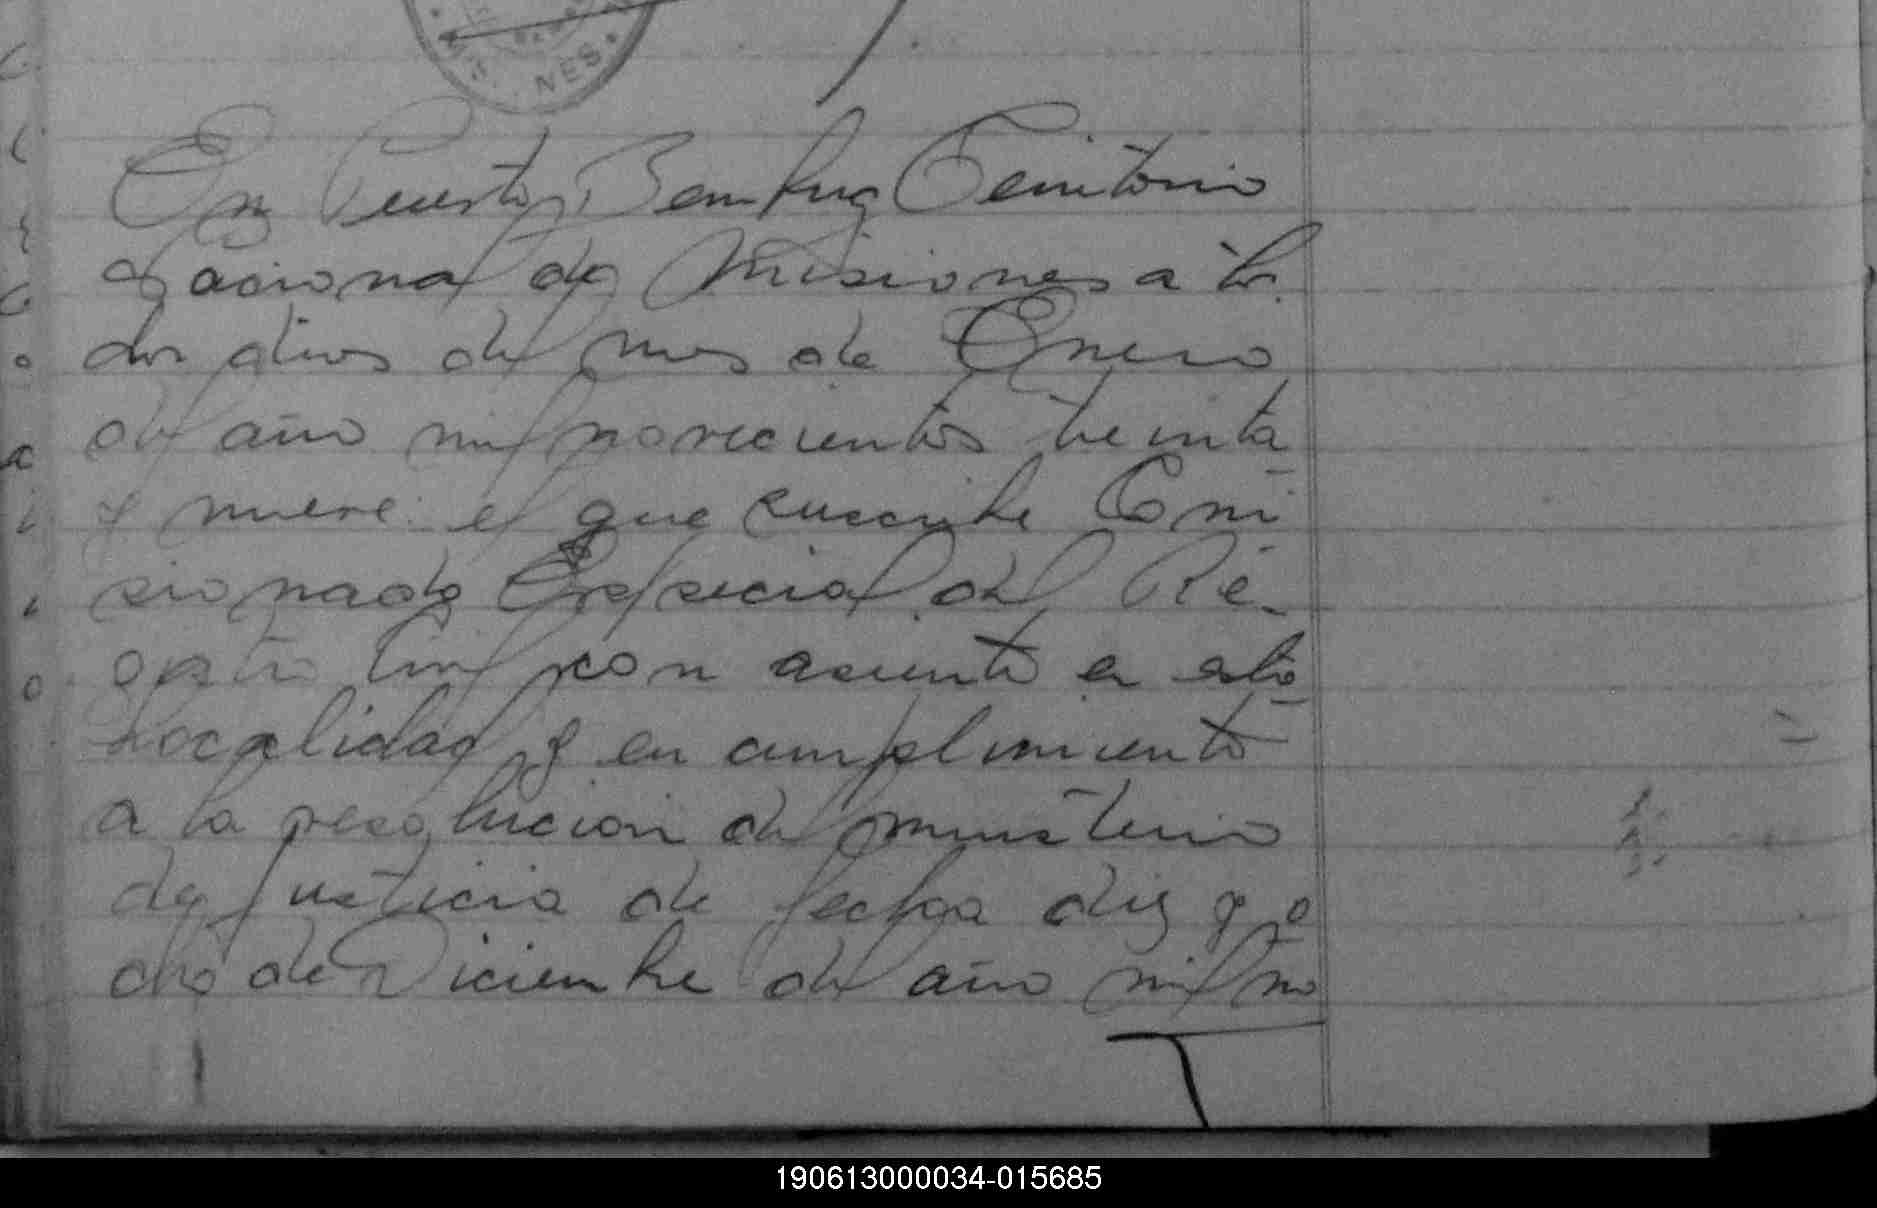 NES
En Puerto Bemberg Territorio
Nacional de Misiones a los
dos dias del mes de Enero
del año mil novecientos treinta
y nueve el que suscribe Comi
sionado Especial del Re-
gistro Civil con asiento en esta
Localidad y en cumplimiento
a la resolucion del ministerio
de Justicia de fecha diez y o
cho de Diciembre del año mil no
190613000034-015685